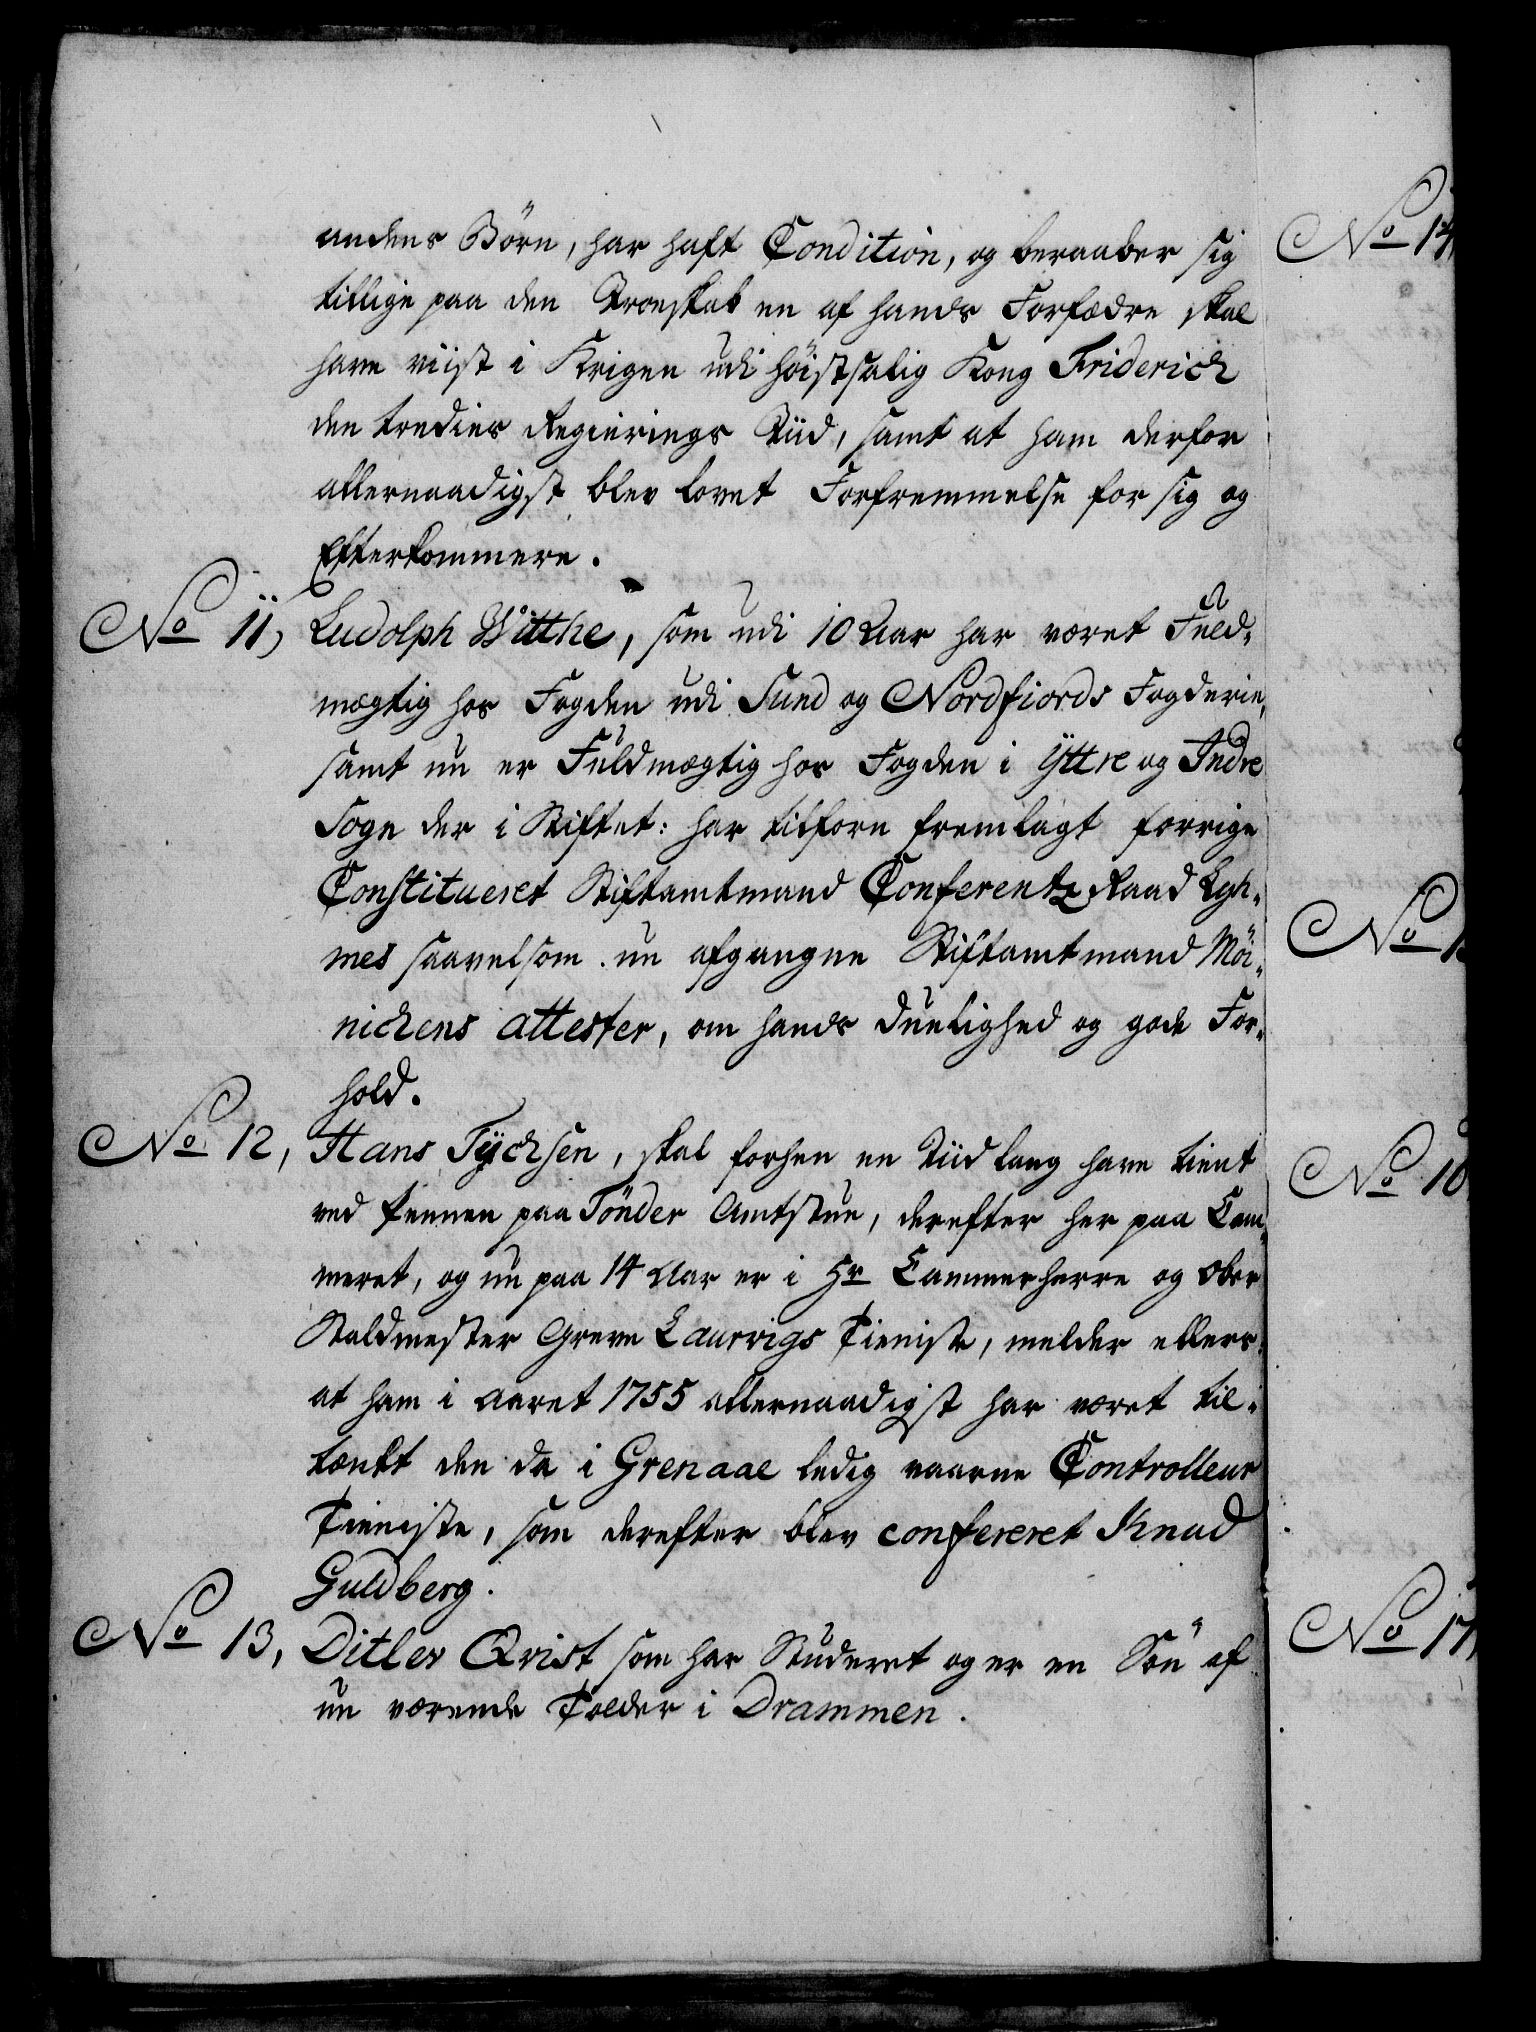 andens Börn, har haft Condition, og beraaber sig
tillige paa den Troeskab en af hands Forfædre skal
have viist i Krigen udi höistsalig Kong Friderich
den tredies Regierings Tiid, samt at ham derfor
allernaadigst blev lovet Forfremmelse for sig og
Efterkommere.
No 11, Ludolph Witthe, som udi 10 Aar har været Fuld-
mægtig hos Fogden udi Sund og Nordfiords Fogderie,
samt nu er Fuldmægtig hos Fogden i Yttre og Indre
Sogn der i Stiftet: har tilforn fremlagt forrige
Constitueret Stiftamtmand Conferentz Raad Lyh-
mes saavelsom nu afgangne Stiftamtmand Möi-
nichens attester, om hands Duelighed og gode For-
hold.
No 12, Hans Tychsen, skal forhen en Tiid lang have tient
ved Pennen paa Tönder Amtstue, derefter her paa Cam-
meret, og nu paa 14 Aar er i Hr Cammerherre og Ober
Staldmester Greve Laurvigs Tieniste, melder ellers
at ham i Aaret 1755 allernaadigst har været til-
tænkt den da i Grenaae ledig vaarne Controlleur
Tieniste, som derefter blev confereret Knud
Guldberg.
No 13, Ditlev Qvist som har Studeret og er en Sön af
nu værende Tolder i Drammen.
No 14
No 1
No 16
No 17,